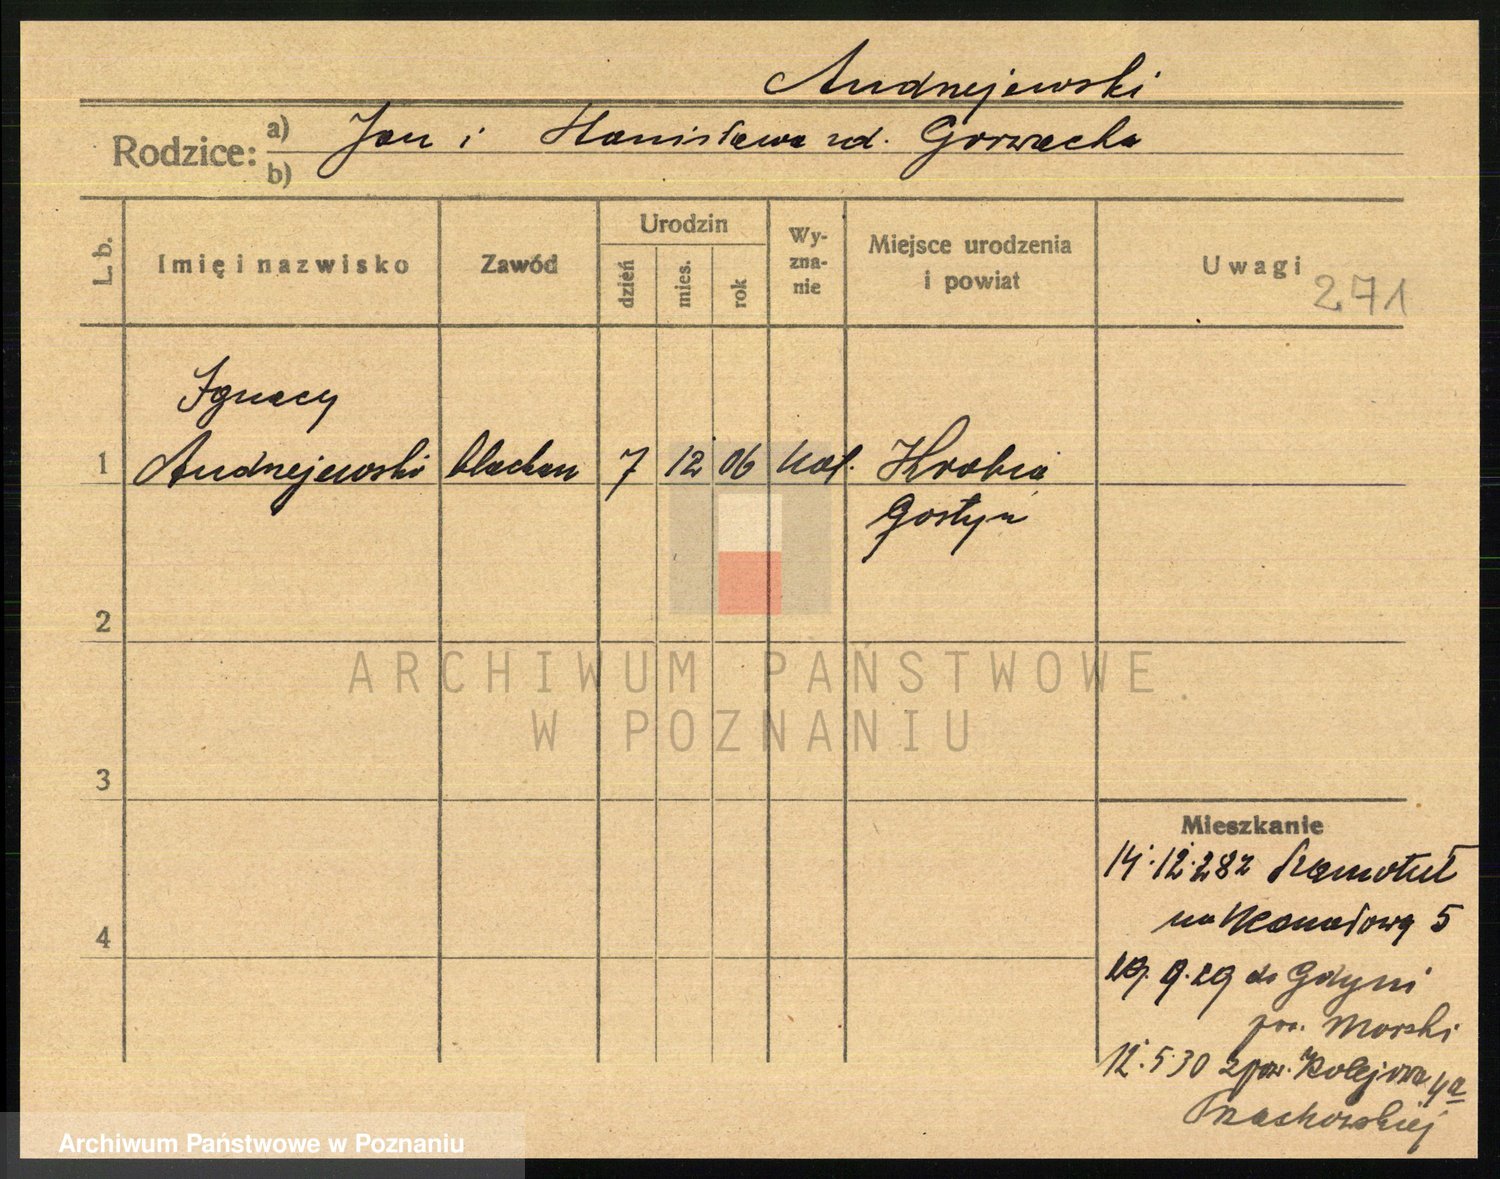 Andrzejewski
Rodzice: a) Jan i Stanisława zd. Gorwacka
b)
L. b.
Imię i nazwisko
Zawód
Urodzin
dzień
mies.
rok
Wy-
zna-
nie
Miejsce urodzenia
i powiat
Uwagi
271
Ignacy
1 Andrzejewski blacharz 7 12 06 kat. Hrabia
Gostyń
2
ARCHIWUM PAŃSTWOWE
W POZNANIU
3
Mieszkanie
14.12.28 z Szamotuł
4
na Kanałową 5
29.9.29 do Gdyni
pow. Morski
12.5.30 z pow. Kolejowa 4a
Archiwum Państwowe w Poznaniu